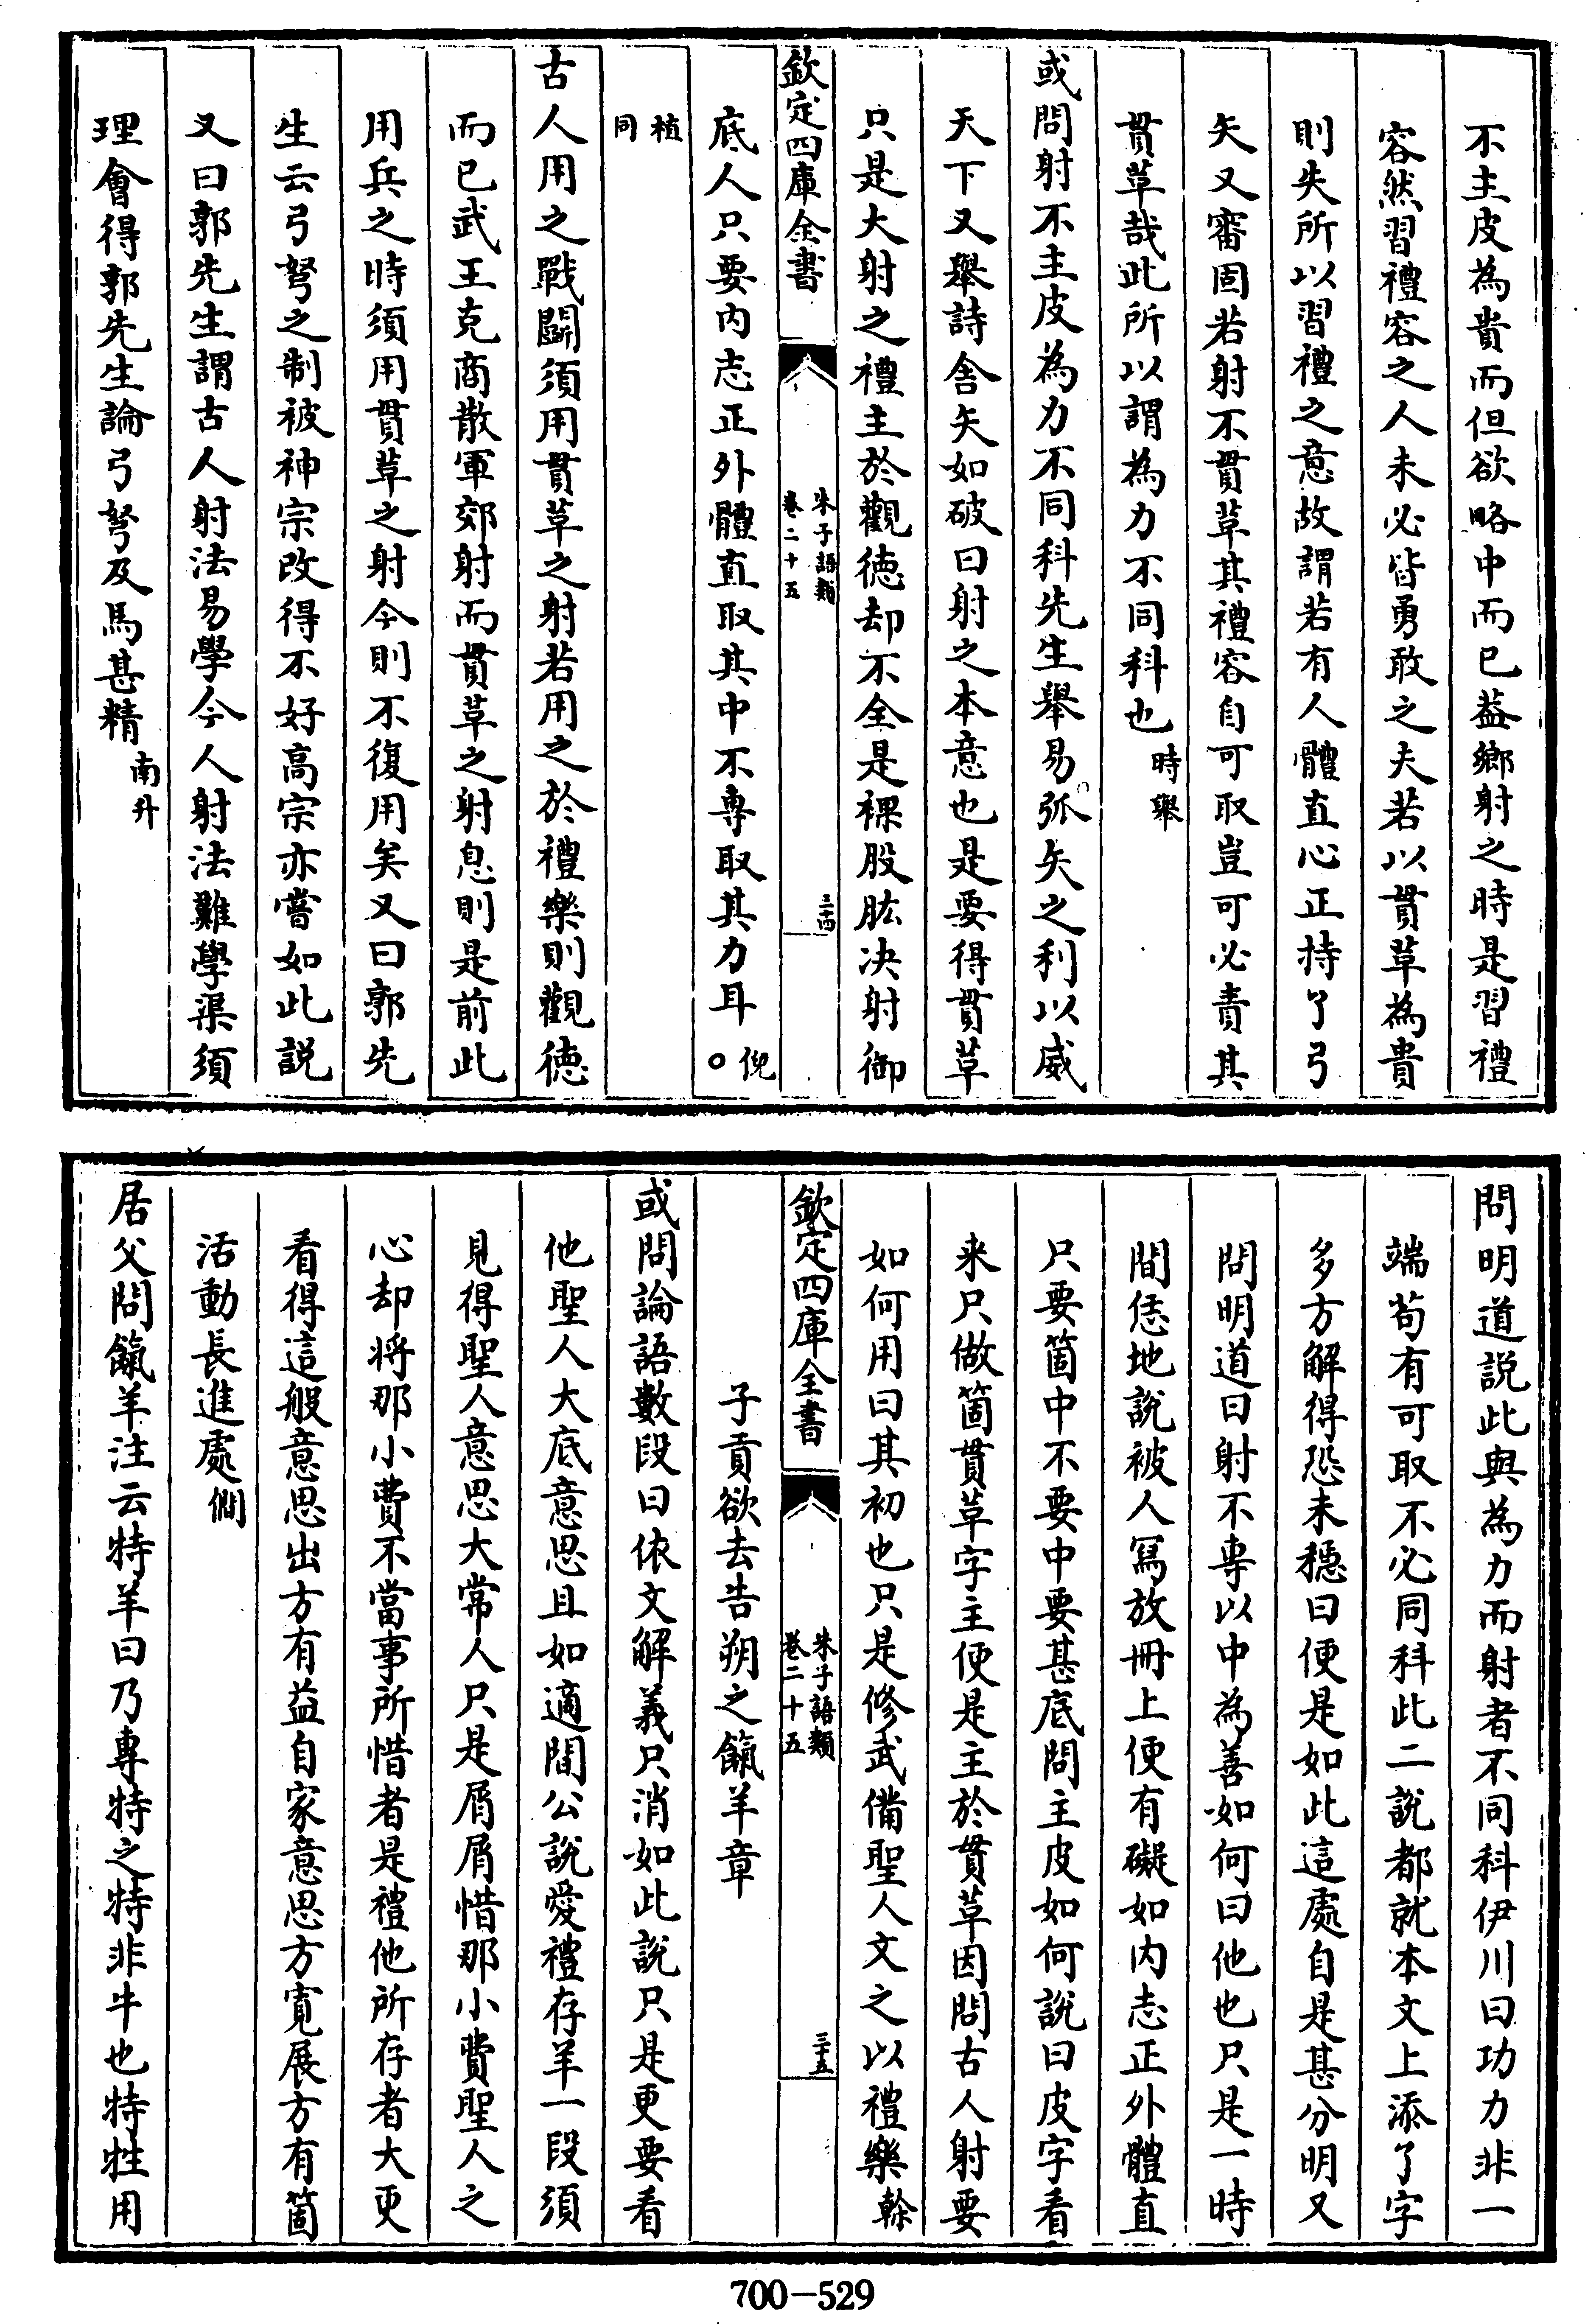 不主皮為貴而但欲略中而已葢鄉射之時是習禮
容然習禮容之人未必皆勇敢之夫若以貫革為貴
則失所以習禮之意故謂若有人體直心正持了弓
矢又審固若射不貫革其禮容自可取豈可必責其
貫革哉此所以謂為力不同科也時舉
或問射不主皮為力不同科先生舉易弧矢之利以威
天下又舉詩舍矢如破曰射之本意也是要得貫革
只是大射之禮主於觀徳却不全是裸股肱决射御
欽定四庫全書
朱子語類
卷二十五
三十四
底人只要内志正外體直取其中不專取其力耳倪○
植同
古人用之戰鬭須用貫革之射若用之於禮樂則觀徳
而已武王克商散軍郊射而貫革之射息則是前此
用兵之時須用貫革之射今則不復用矣又曰郭先
生云弓弩之制被神宗改得不好高宗亦嘗如此說
又曰郭先生謂古人射法易學今人射法難學渠須
理會得郭先生論弓弩及馬甚精南升
問明道說此與為力而射者不同科伊川曰功力非一
端茍有可取不必同科此二說都就本文上添了字
多方解得恐未穩曰便是如此這處自是甚分明又
問明道曰射不專以中為善如何曰他也只是一時
間恁地說被人冩放冊上便有礙如内志正外體直
只要箇中不要中要甚底問主皮如何說曰皮字看
来只做箇貫革字主便是主於貫革因問古人射要
如何用曰其初也只是修武備聖人文之以禮樂榦
欽定四庫全書
朱子語類
卷二十五
三十五
子貢欲去告朔之餼羊章
或問論語數段曰依文解義只消如此說只是更要看
他聖人大底意思且如適間公說愛禮存羊一段須
見得聖人意思大常人只是屑屑惜那小費聖人之
心却将那小費不當事所惜者是禮他所存者大更
看得這般意思出方有益自家意思方寛展方有箇
活動長進處僩
居父問餼羊注云特羊曰乃專特之特非牛也特牲用
700-529